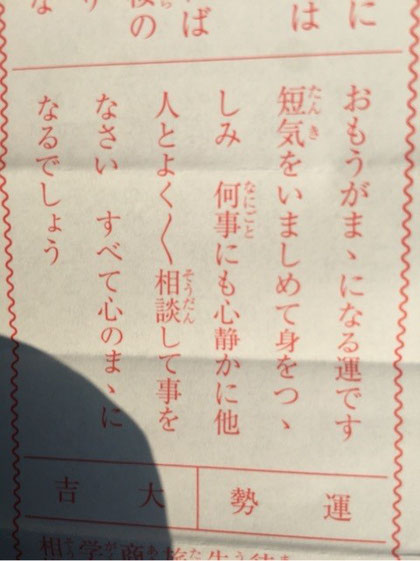 おもうがまゝになる運です
短気をいましめて身をつゝ
しみ　何事にも心静かに他
人とよく〱相談して事を
なさい　すべて心のまゝに
なるでしょう
運勢
大吉